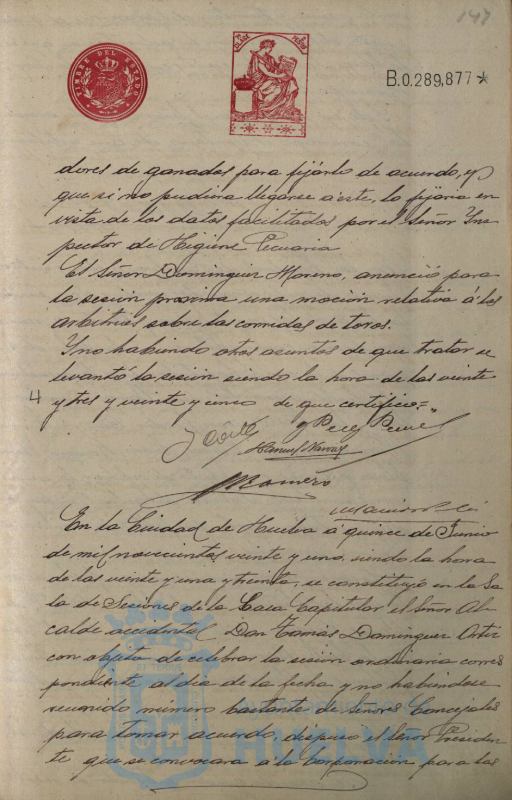 147
TIMBRE DEL ESTADO
B.0.289,877*
dores de ganados para fijarlo de acuerdo, y
que si no pudiera llegarse a este, lo fijaria en
vista de los datos facilitados por el Señor Yns
pector de Higiene Pecuaria
El Señor Dominguez Moreno, anunció para
la sesión proxima una moción relativa á los
arbitrios sobre las corridas de toros.
Y no habiendo otros asuntos de que tratar se
levantó la sesion siendo la hora de las veinte
4
y tres y veinte y cinco de que certifico =
Manuel
Romero
En la Ciudad de Huelva á quince de Junio
de mil novecientos veinte y uno, siendo la hora
de las veinte y una y treinta, se constituyó en la Sa
la de Sesiones de la Casa Capitular el Señor Al
calde accidental Don Tomás Dominguez Ortiz
con objeto de celebrar la sesión ordinaria corres
pondiente al dia de la fecha y no habiendose
reunido número bastante de Señores Concejales
para tomar acuerdo, dispuso el Señor Presiden
te que se convocara á la Corporación para las
HUELVA